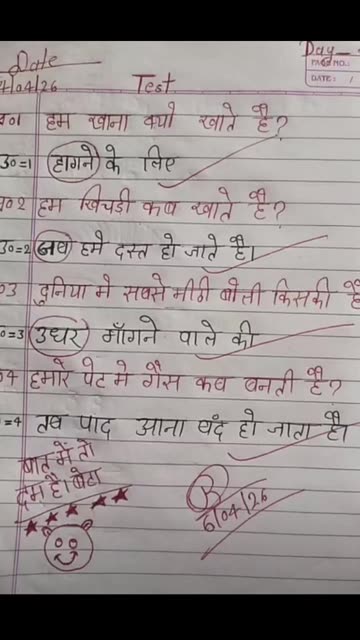 Date
Day
PAGE NO.:
DATE:
/04/26
Test
हम खाना क्यो खाते है?
उ०=1 हागने के लिए
प्र०2 हम खिचडी कब खाते है?
उ०=2 जब हमे दस्त हो जाते है।
03 दुनिया मे सबसे मीठी बोली किसकी है
०=3 उधार माँगने वाले की
04 हमारे पेट मे गैस कब बनती है?
=4 तब पाद आना बंद हो जाता है।
बात में तो
दम है। बेटा
6/04/26